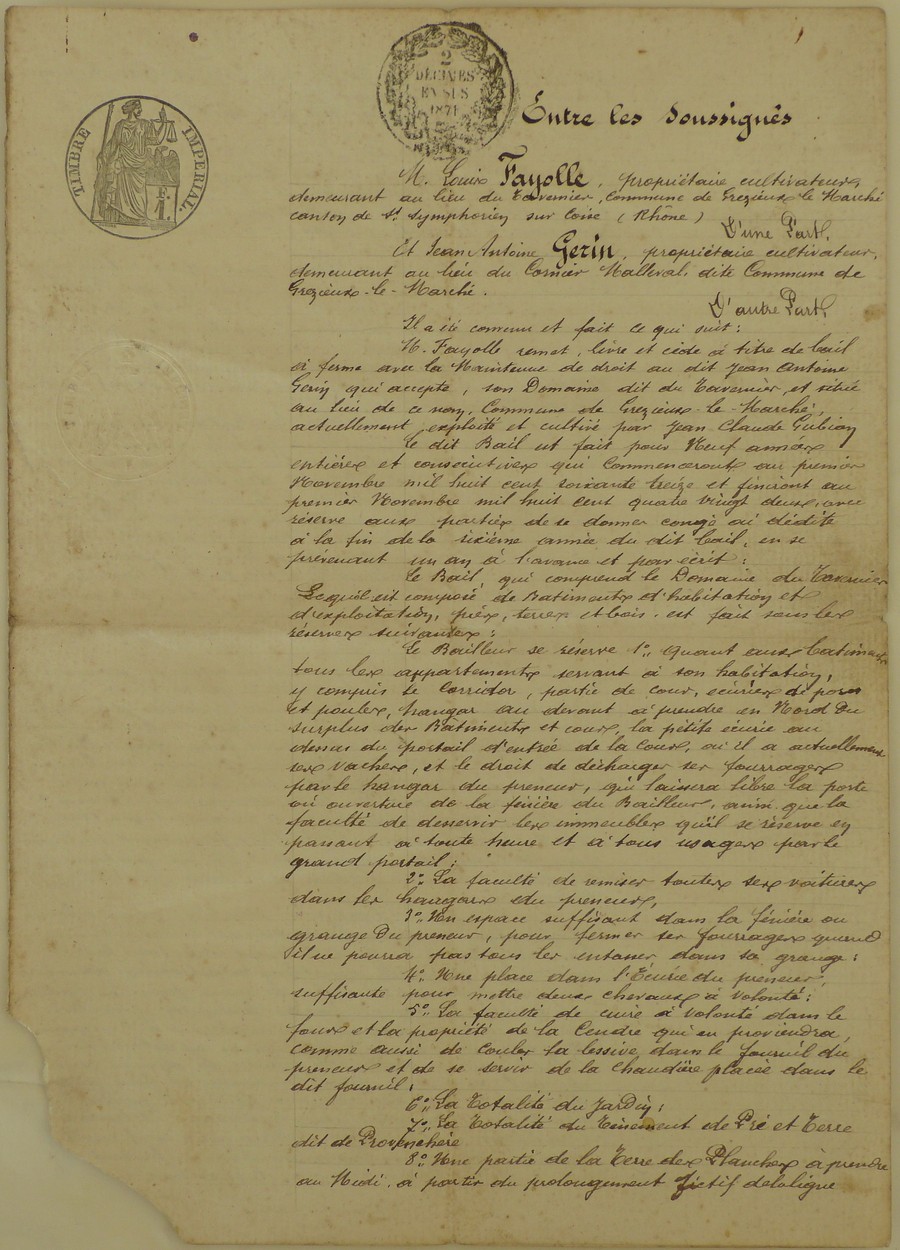 TIMBRE IMPERIAL
1 F.
2
DÉCIMES
EN SUS
1871
Entre les Soussignés
M. Louis Fayolle, propriétaire cultivateur,
demeurant au lieu du Tavernier, Commune de Grezieux-le-Marché
canton de St Symphorien sur Coise (Rhône)
D'une Part,
Et Jean Antoine Gerin, propriétaire cultivateur,
demeurant au lieu du Cornier Malleval, dite Commune de
Grezieux-le-Marché.
D'autre Part,
Il a été convenu et fait ce qui suit:
M. Fayolle remet, livre et cède à titre de bail
à ferme avec la Maintenue de droit au dit Jean Antoine
Gerin qui accepte, son Domaine dit du Tavernier, et situé
au lieu de ce nom, Commune de Grezieux-le-Marché,
actuellement exploité et cultivé par Jean Claude Gubian
Le dit Bail est fait pour Neuf années
entières et consécutives qui Commenceront au premier
Novembre mil huit cent soixante treize et finiront au
premier Novembre mil huit cent quatre vingt deux, avec
réserve aux parties de se donner congé ou dédite
à la fin de la sixième année du dit bail, en se
prévenant un an à l'avance et par écrit:
Le Bail, qui comprend le Domaine du Tavernier
Lequel est composé de Batiments d'habitation et
d'exploitation, prés, terres et bois, est fait sous les
réserves suivantes:
Le Bailleur se réserve 1º, quant aux batiments
tous les appartements servant à son habitation,
y compris le Corridor, partie de cour, écuries de porcs
et poules, hangar au devant à prendre en Nord du
surplus des Bâtiments et cour, la petite écurie au
dessus du portail d'entrée de la Cour, où il a actuellement
ses vaches, et le droit de décharger ses fourrages
par le hangar du preneur, qui laissera libre la porte
ou ouverture de la fénière du Bailleur, ainsi que la
faculté de desservir les immeubles qu'il se réserve en
passant à toute heure et à tous usages par le
grand portail:
2º La faculté de remiser toutes ses voitures
dans les hangars du preneur,
3º Un espace suffisant dans la fénière ou
grange Du preneur, pour fermer ses fourrages quand
il ne pourra pas tous les entasser dans sa grange:
4º Une place dans l'Écurie du preneur,
suffisante pour mettre deux chevaux à volonté:
5º La faculté de cuire à volonté dans le
four et la propriété de la Cendre qui en proviendra,
comme aussi de couler sa lessive dans le fournil du
preneur et de se servir de la chaudière placée dans le
dit fournil:
6º La Totalité du Jardin:
7º La Totalité du Tenement de Pré et Terre
dit de Provenchère
8º Une partie de la Terre des Planches à prendre
au Midi, à partir du prolongement fictif de la ligne